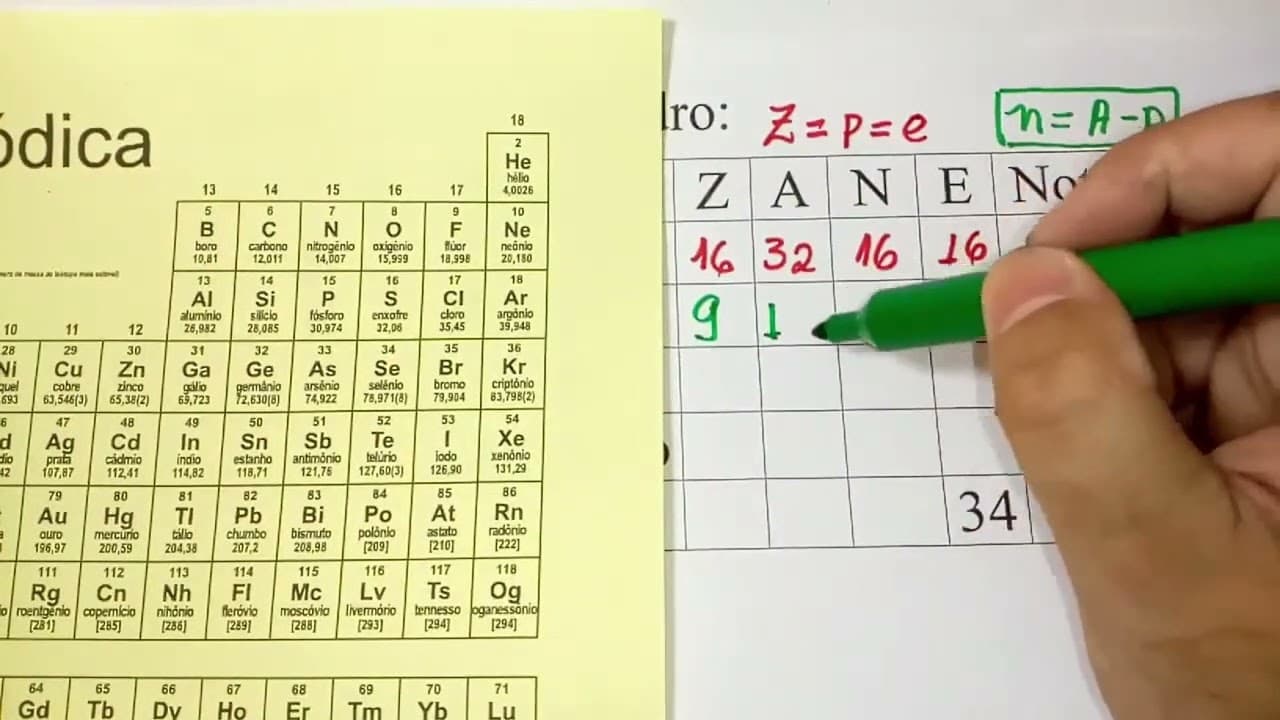 ódica
18
2
He
hélio
4,0026
13 14 15 16 17
5 6 7 8 9 10
B C N O F Ne
boro carbono nitrogênio oxigênio flúor neônio
10,81 12,011 14,007 15,999 18,998 20,180
13 14 15 16 17 18
Al Si P S Cl Ar
alumínio silício fósforo enxofre cloro argônio
26,982 28,085 30,974 32,06 35,45 39,948
10 11 12
28 29 30 31 32 33 34 35 36
Ni Cu Zn Ga Ge As Se Br Kr
quel cobre zinco gálio germânio arsênio selênio bromo criptônio
693 63,546(3) 65,38(2) 69,723 72,630(8) 74,922 78,971(8) 79,904 83,798(2)
6 47 48 49 50 51 52 53 54
d Ag Cd In Sn Sb Te I Xe
dio prata cádmio índio estanho antimônio telúrio iodo xenônio
42 107,87 112,41 114,82 118,71 121,76 127,60(3) 126,90 131,29
79 80 81 82 83 84 85 86
Au Hg Tl Pb Bi Po At Rn
ouro mercúrio tálio chumbo bismuto polônio astato radônio
196,97 200,59 204,38 207,2 208,98 [209] [210] [222]
111 112 113 114 115 116 117 118
Rg Cn Nh Fl Mc Lv Ts Og
roentgênio copernício nihônio fleróvio moscóvio livermório tennesso oganessônio
[281] [285] [286] [289] [288] [293] [294] [294]
64 65 66 67 68 69 70 71
Gd Tb Dy Ho Er Tm Yb Lu
ro: Z = p = e n = A - p
Z A N E Not
16 32 16 16
9 1
34